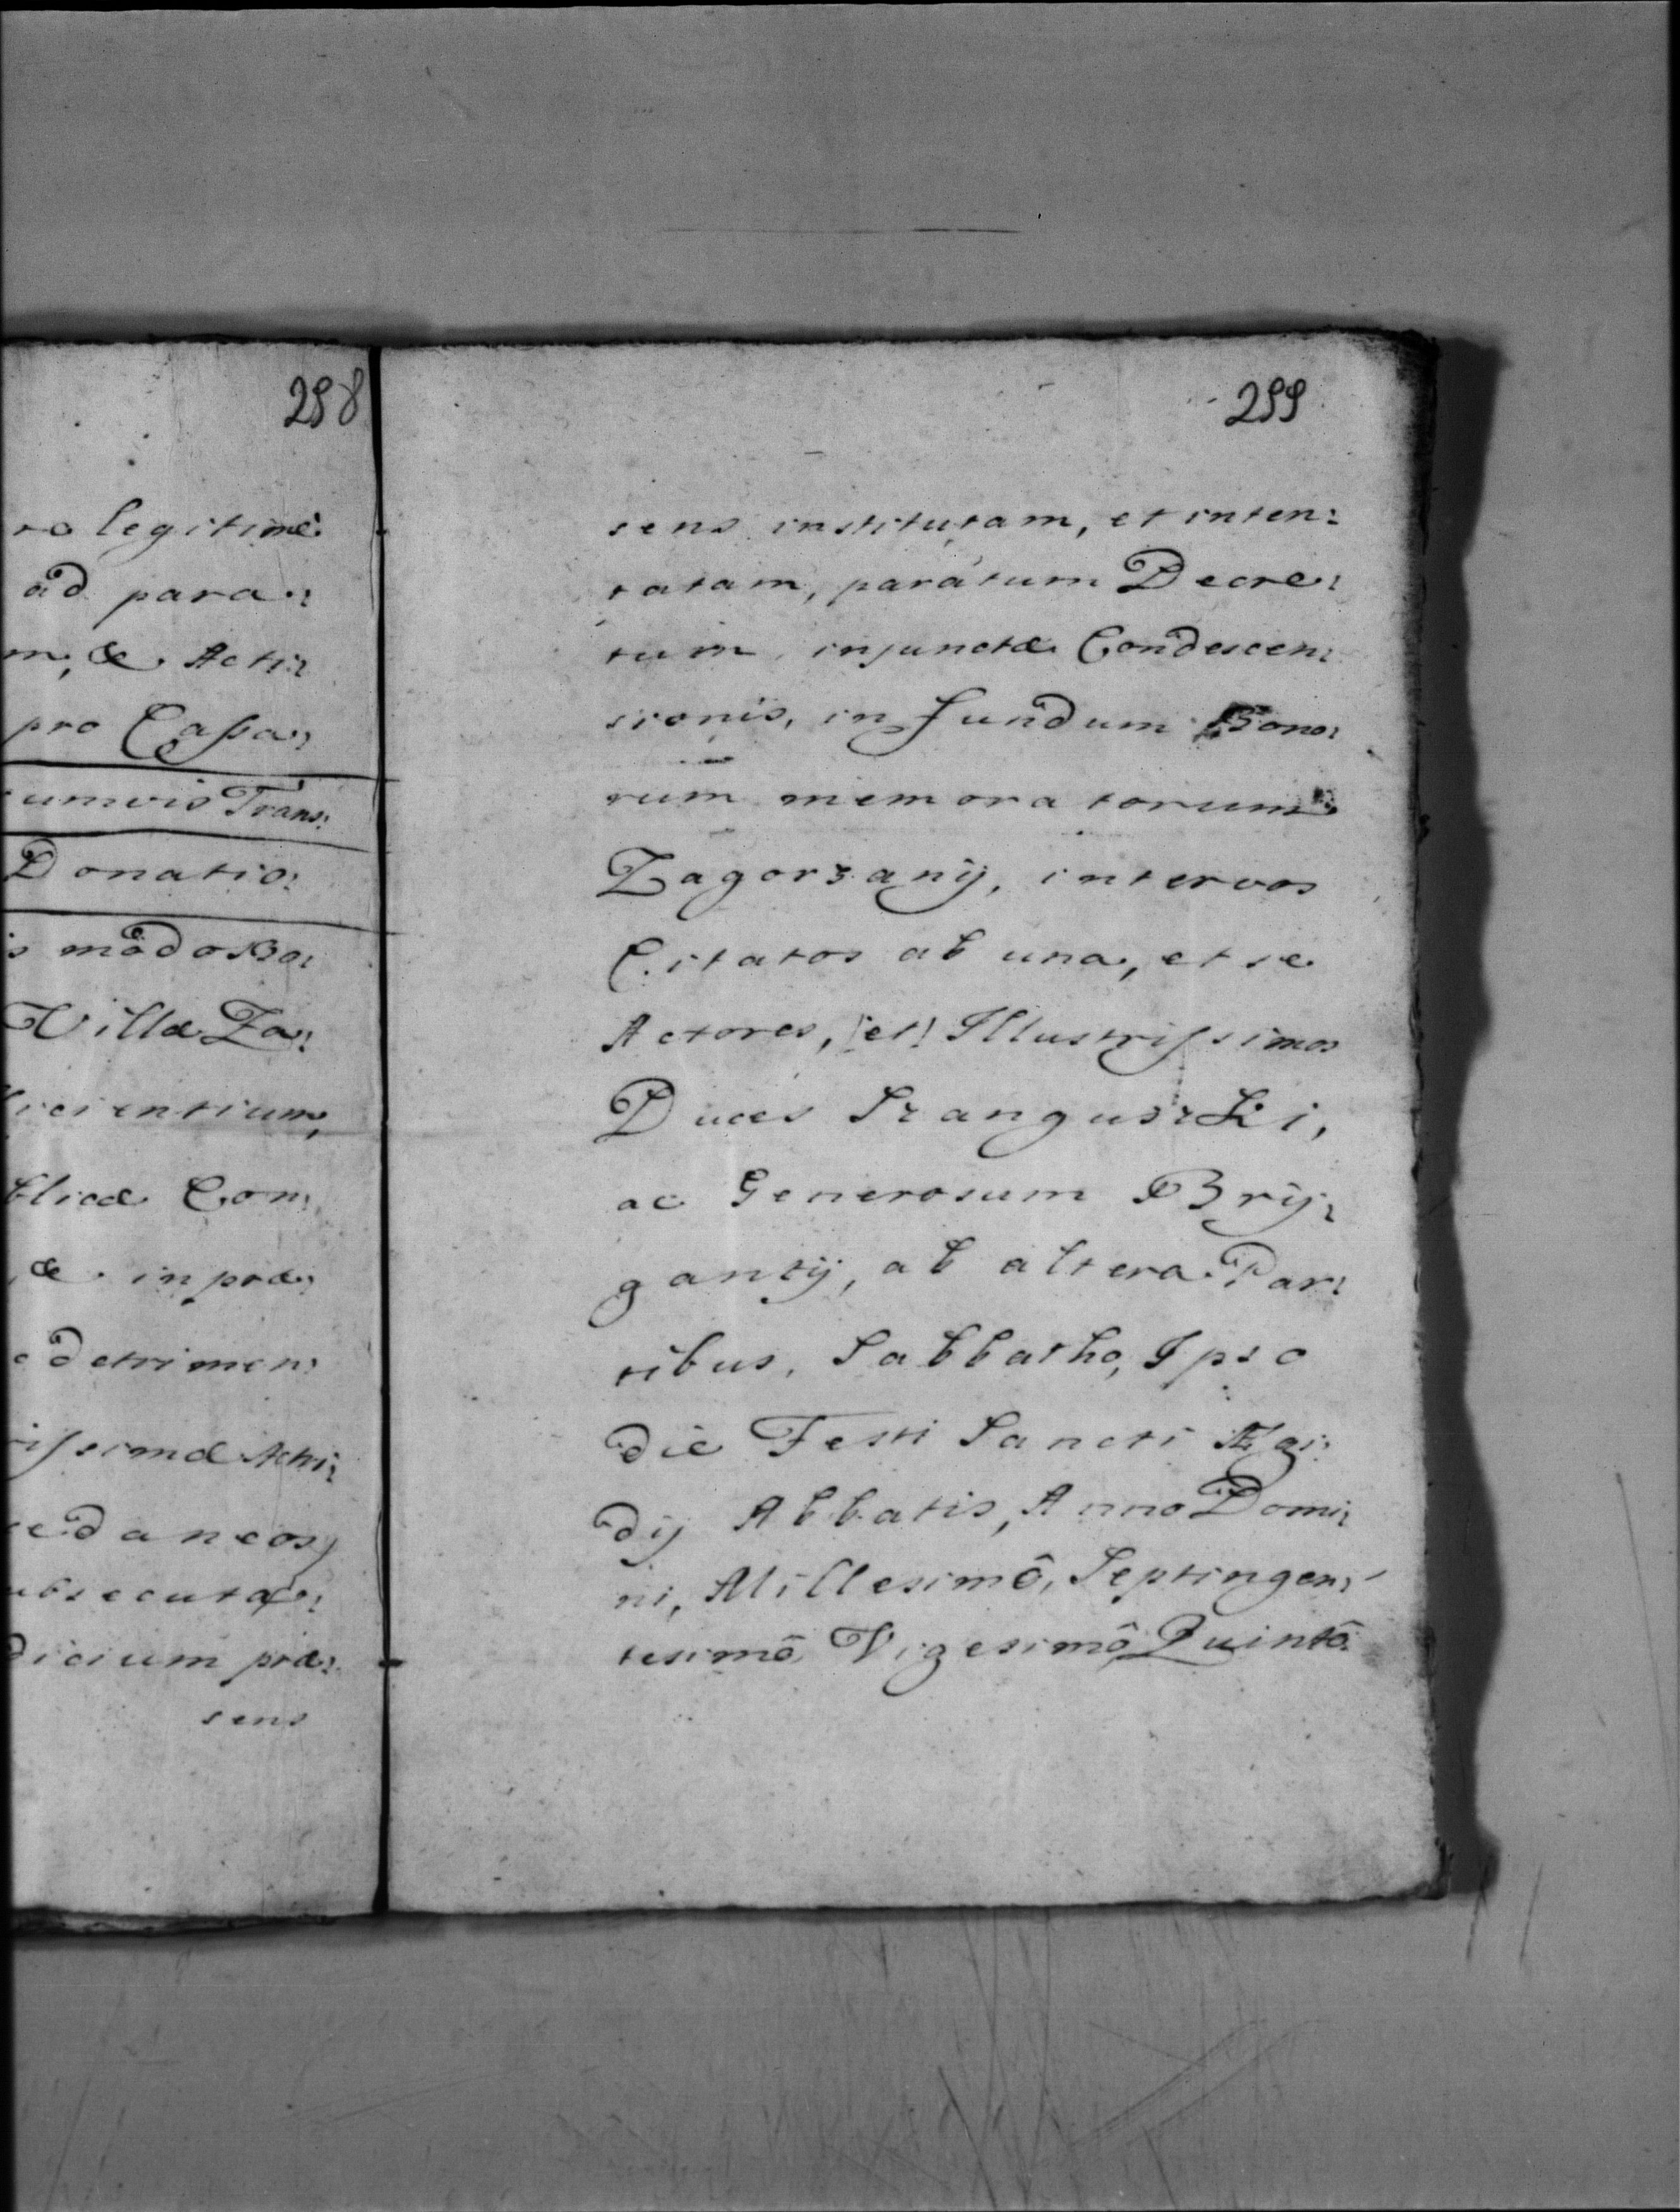 298
ro legitimè
ad para:
m, & Acti:
pro Cassa:
umvis Trans:
Donatio:
s modo Bo:
Villæ Za:
cientium,
blicæ Con:
æ in præ:
detrimen:
issimæ Actri:
cedaneos,
ubsecutæ:
dicium præ:
sens
299
sens institutam, et inten:
tatam, paratum Decre:
tum injunctæ Condescen:
sionis, in fundum Bono:
rum memoratorum
Zagorzany, inter vos
Citatos ab una, et se
Actores, /et/ Illustrissimos
Duces Sranguszki,
ac Generosum Bry:
ganty, ab altera Par:
tibus, Sabbatho, Ipso
die Festi Sancti Ægi:
dij Abbatis, Anno Domi:
ni, Millesimô, Septingen:
tesimô, Vigesimô Quintô